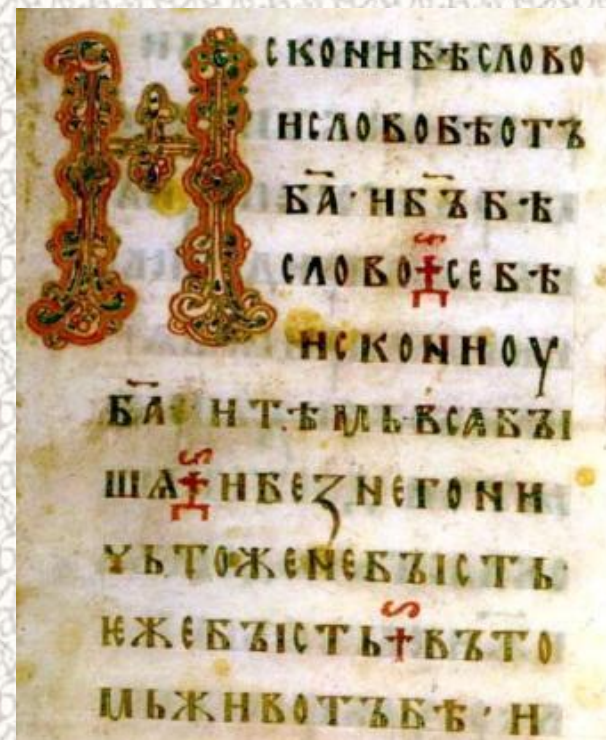 ИСКОНИБѢСЛОВО
ИСЛОВОБѢОТЪ
Б҃А·ИБ҃ЪБѢ
СЛОВО☦СЕБѢ
ИСКОНИОУ
Б҃А·ИТѢМЬВСѦБЪІ
ШѦ☦ИБЕЗНЕГОНИ
ЧЬТОЖЕНЕБЪІСТЬ
ѤЖЕБЪІСТЬ†ВЪТО
МЬЖИВОТЪБѢ·И